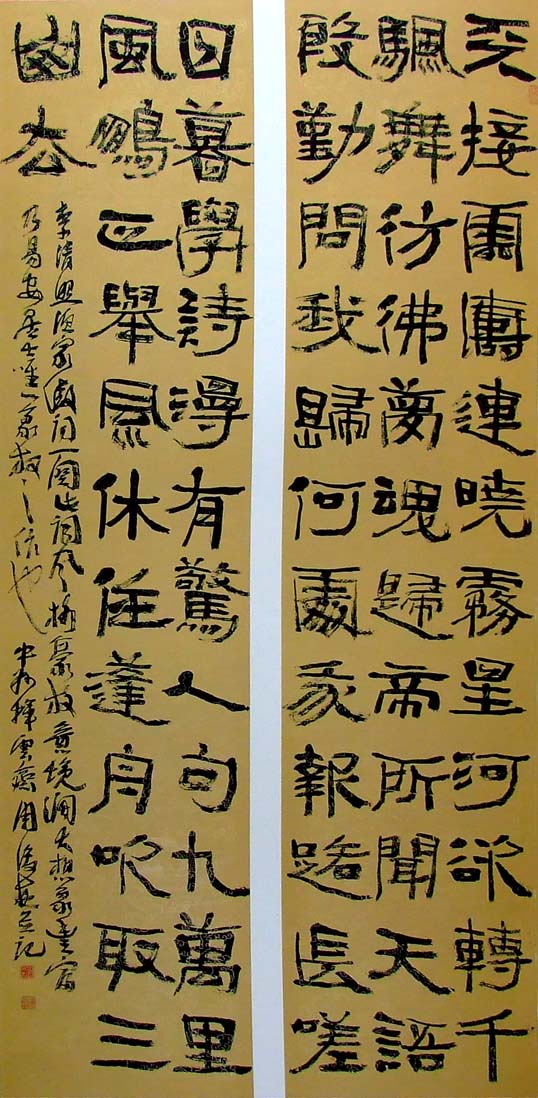 天接雲濤連曉霧星河欲轉千
颿舞彷彿夢魂歸帝所聞天語
殷勤問我歸何處我報路長嗟
日暮學詩漫有驚人句九萬里
風鵬正舉風休住蓬舟吹取三
山去
李清照漁家傲詞一闋此詞風格豪放意境闊大想象豐富
乃易安居士唯一豪放之作也 中州揮雲齋周俊杰並記